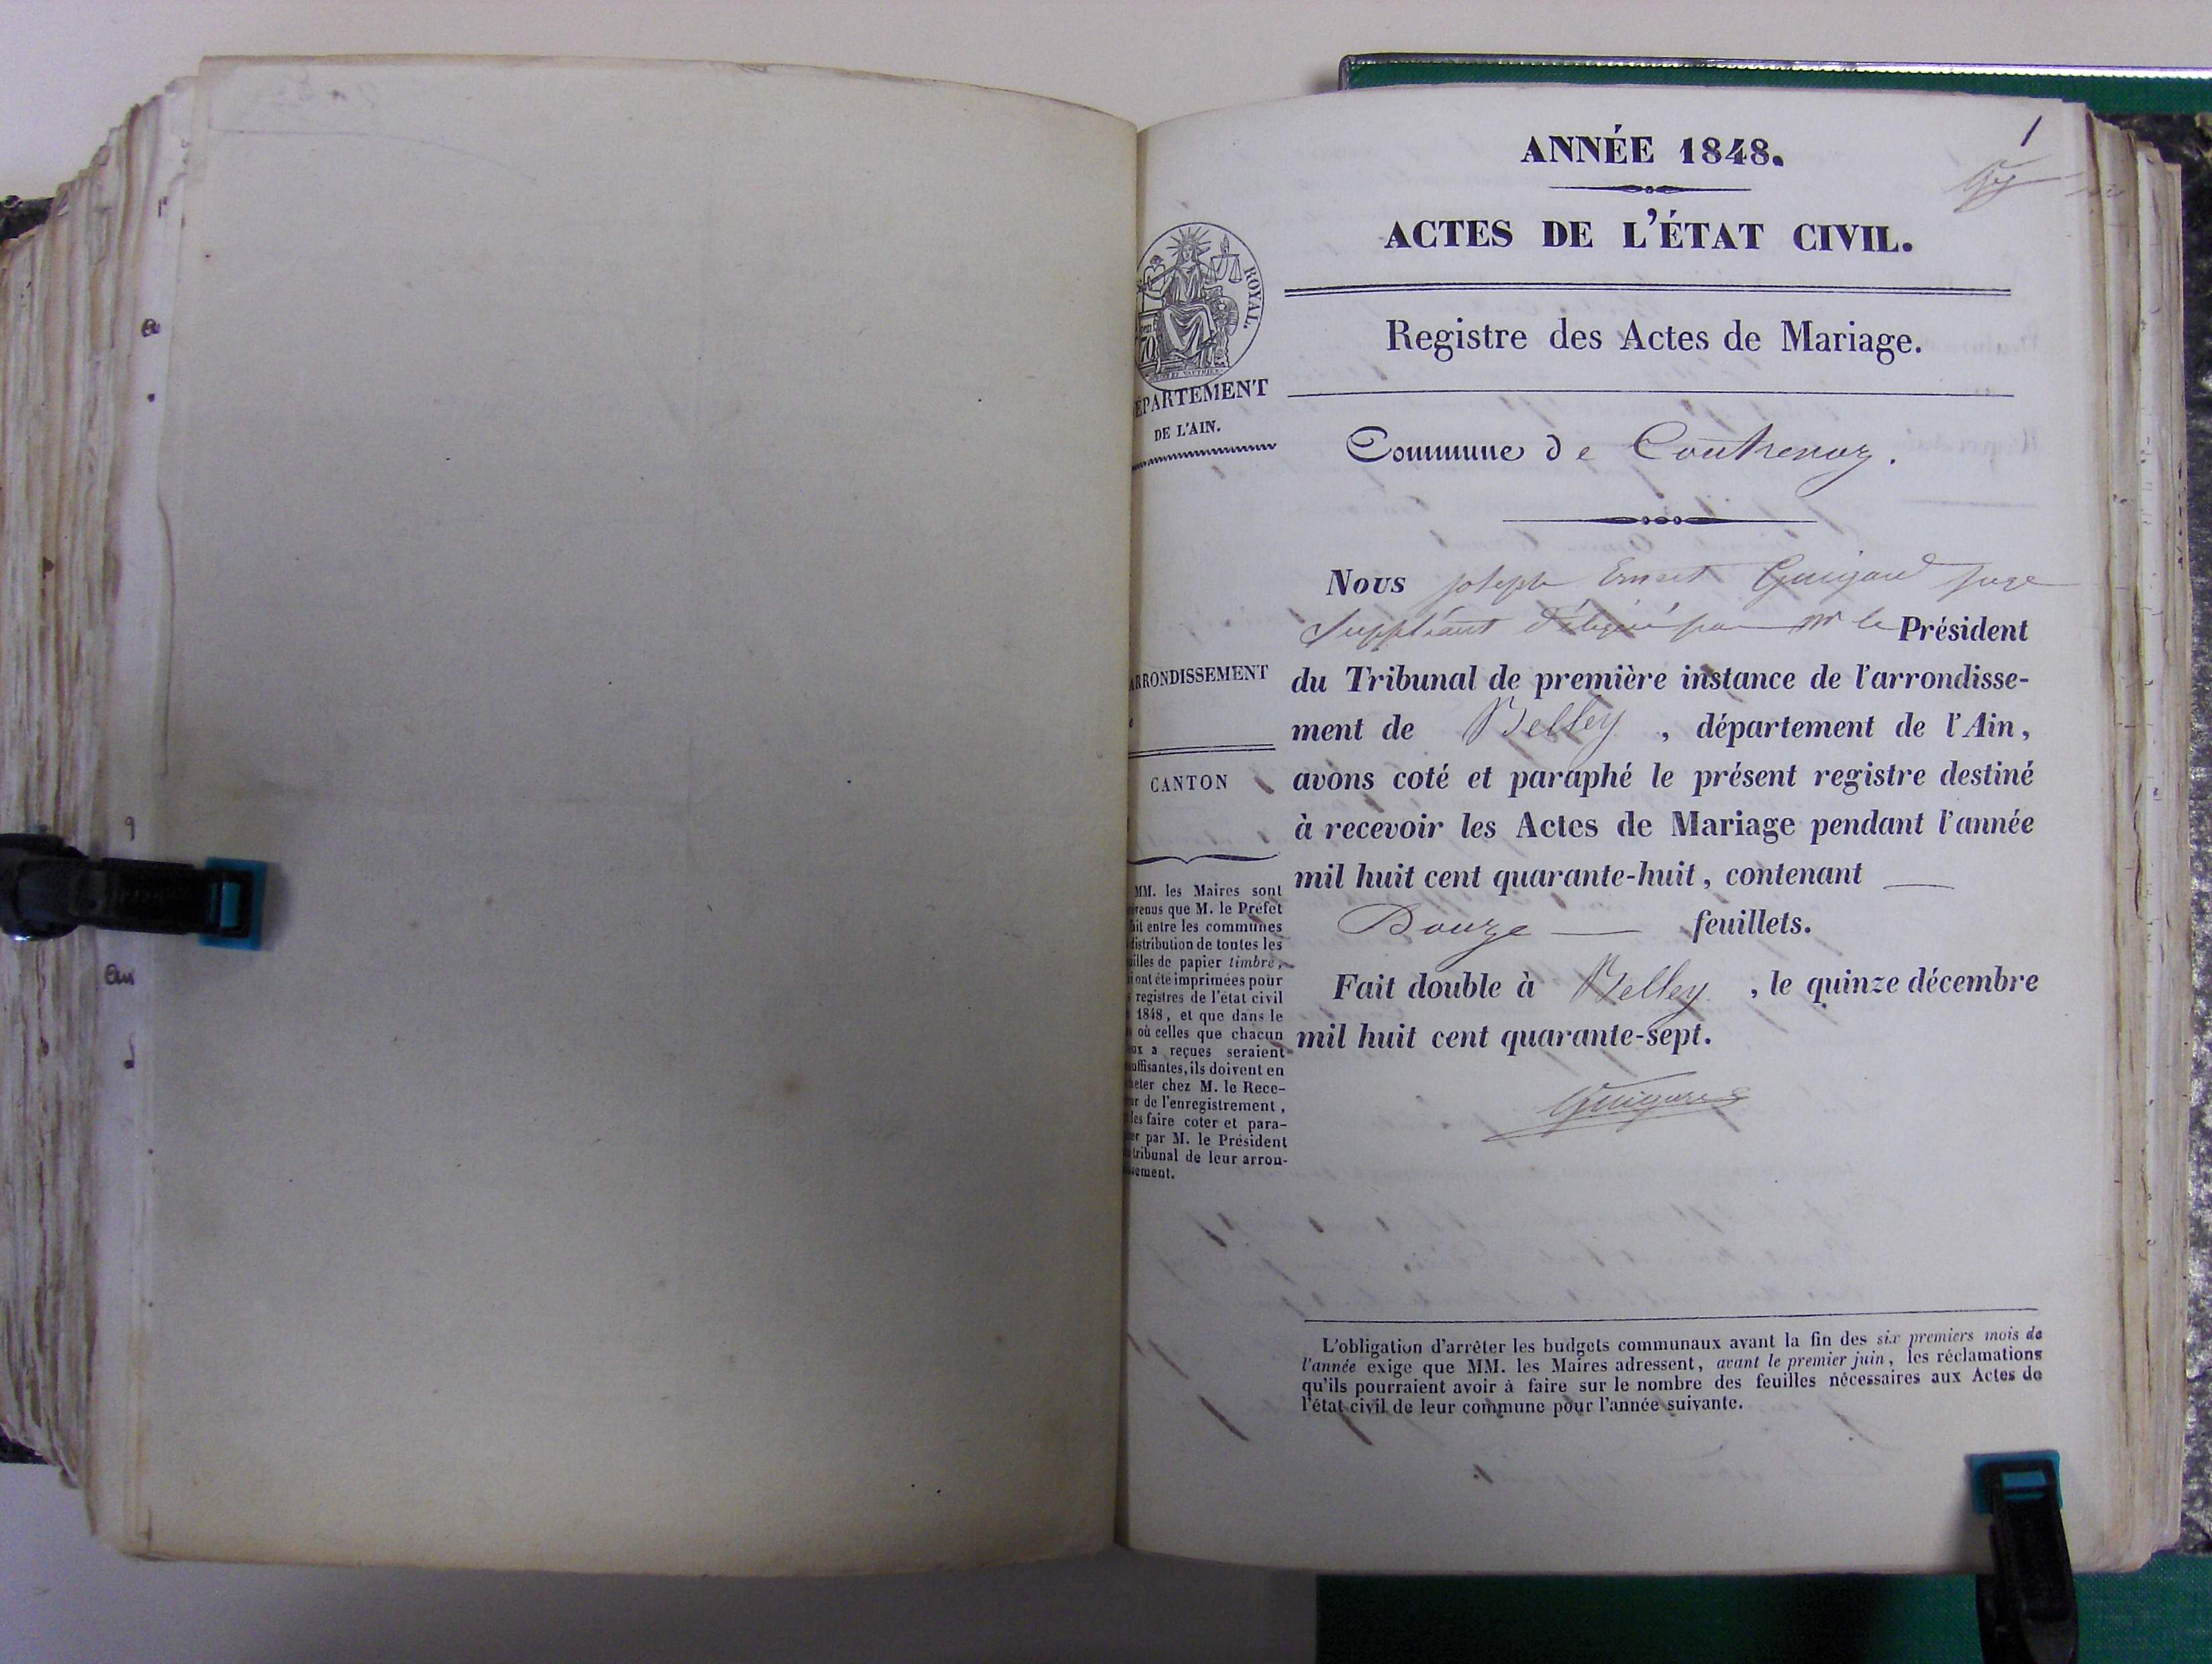 1
ANNÉE 1848.
ACTES DE L'ÉTAT CIVIL.
ROYAL.
70
ÉPARTEMENT
DE L'AIN.
Registre des Actes de Mariage.
Commune de Contrevoz.
Nous Joseph Ernest Guigard juge
Suppléant délégué par Mr le Président
du Tribunal de première instance de l'arrondisse-
ment de Belley, département de l'Ain,
avons coté et paraphé le présent registre destiné
à recevoir les Actes de Mariage pendant l'année
mil huit cent quarante-huit, contenant
Douze feuillets.
Fait double à Belley, le quinze décembre
mil huit cent quarante-sept.
Guigard
ARRONDISSEMENT
CANTON
MM. les Maires sont
venus que M. le Préfet
it entre les communes
distribution de toutes les
illes de papier timbré,
i ont été imprimées pour
registres de l'état civil
1848, et que dans le
où celles que chacun
ux a reçues seraient
uffisantes, ils doivent en
heter chez M. le Rece-
ur de l'enregistrement,
les faire coter et para-
er par M. le Président
tribunal de leur arron-
ssement.
L'obligation d'arrêter les budgets communaux avant la fin des six premiers mois de
l'année exige que MM. les Maires adressent, avant le premier juin, les réclamations
qu'ils pourraient avoir à faire sur le nombre des feuilles nécessaires aux Actes de
l'état civil de leur commune pour l'année suivante.